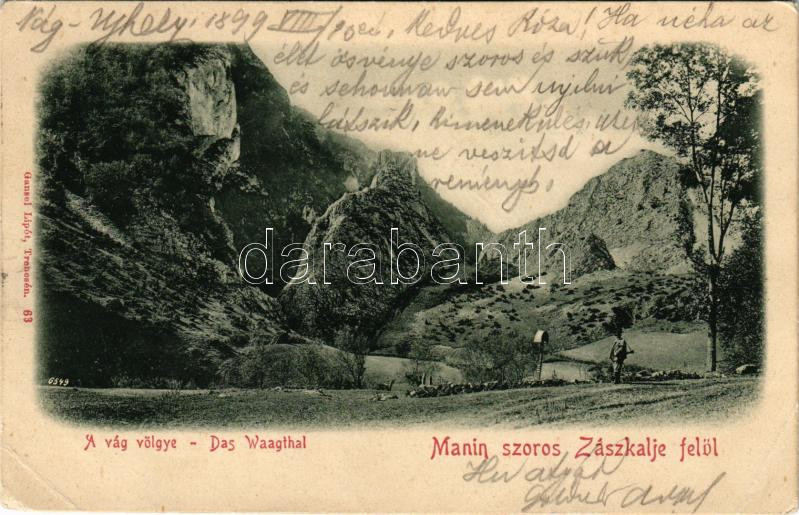 Vág-Ujhely, 1899 VIII/
Kedves Róza! Ha néha az
élet ösvénye szoros és szük
és sehonnan sem nyilni
látszik, kimenekülés,
ne veszitsd a
reményt.
darabanth.com
Gansel Lipót, Trencsén. 63
6549
A vág völgye - Das Waagthal
Manin szoros Zászkalje felöl